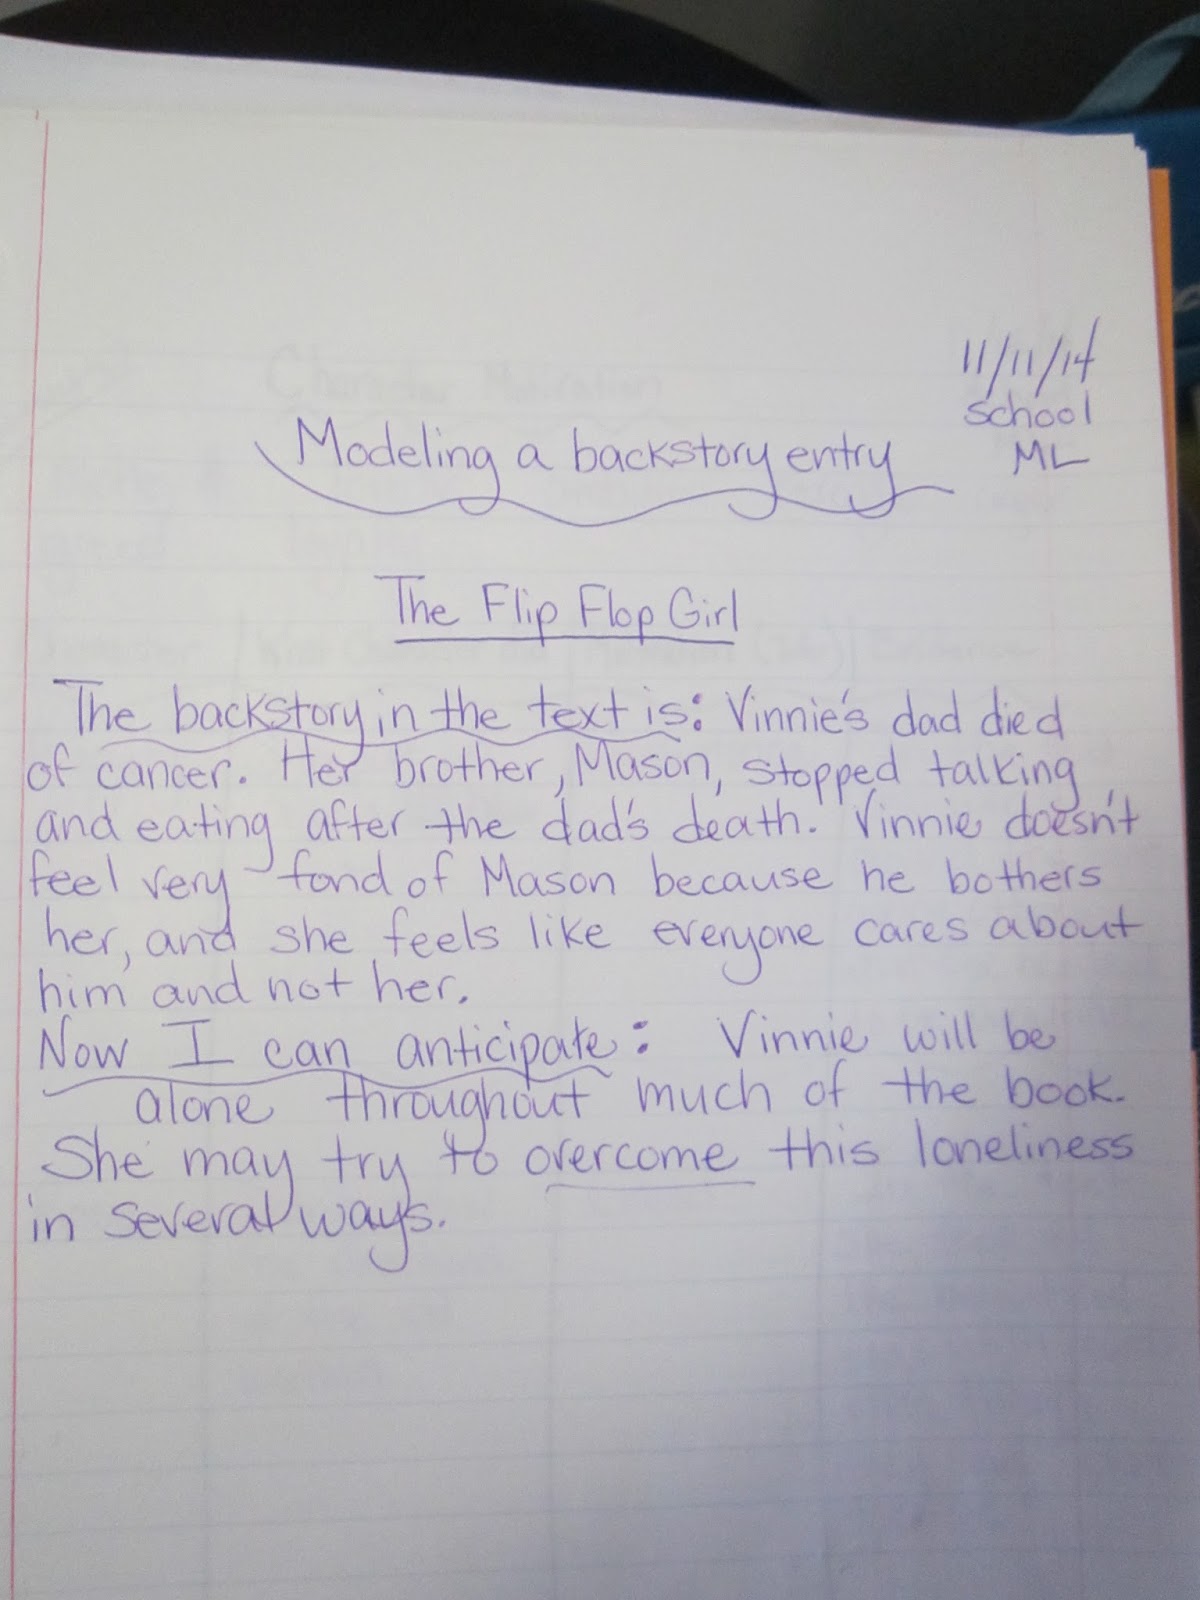 11/11/14
School
ML
Modeling a backstory entry
The Flip Flop Girl
The backstory in the text is: Vinnie's dad died
of cancer. Her brother, Mason, stopped talking
and eating after the dad's death. Vinnie doesn't
feel very fond of Mason because he bothers
her, and she feels like everyone cares about
him and not her.
Now I can anticipate: Vinnie will be
alone throughout much of the book.
She may try to overcome this loneliness
in several ways.